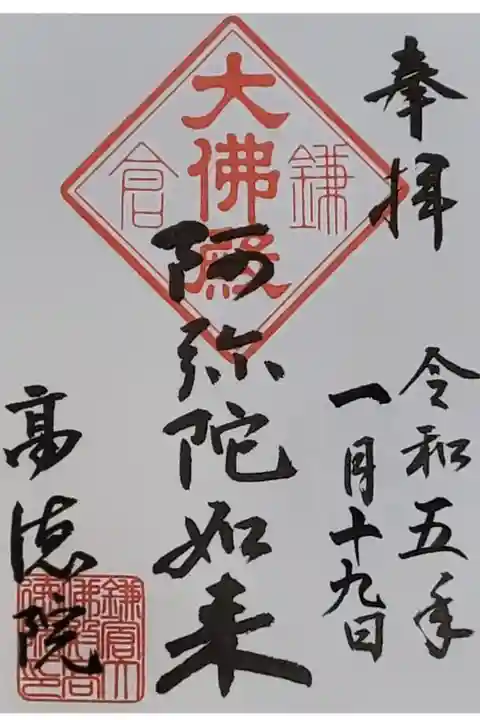 奉拝
令和五年
一月十九日
鎌倉
大佛殿
阿弥陀如来
高徳院